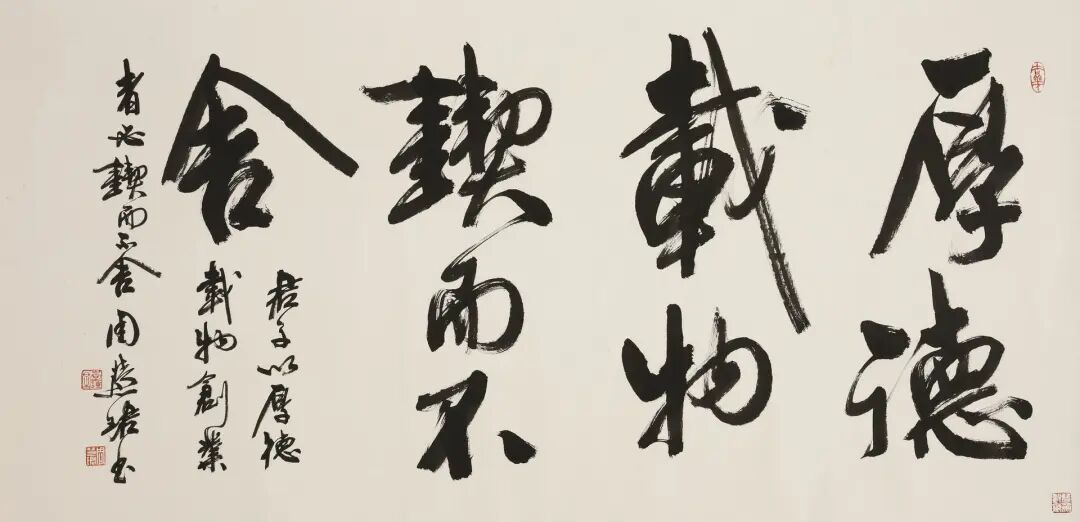 厚德
載物
鍥而不
舍
君子以厚德
載物創業
者必鍥而不舍周慧珺书